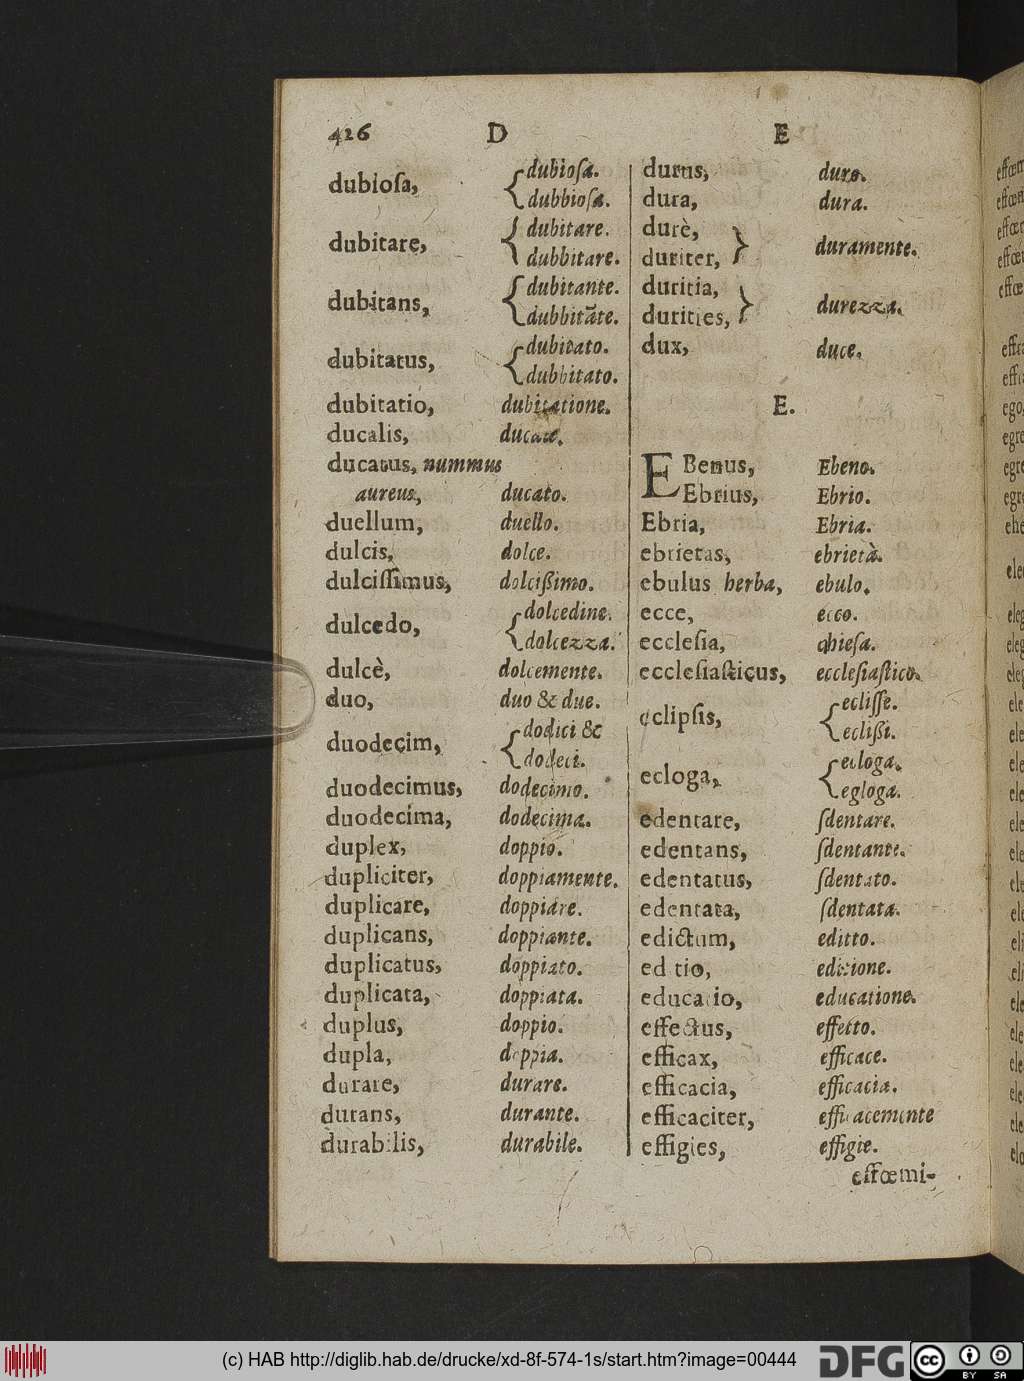 426 D E
dubiosa, { dubiosa.
dubbiosa.
dubitare, { dubitare.
dubbitare.
dubitans, { dubitante.
dubbitāte.
dubitatus, { dubitato.
dubbitato.
dubitatio, dubitatione.
ducalis, ducale.
ducatus, nummus
aureus, ducato.
duellum, duello.
dulcis, dolce.
dulcissimus, dolcißimo.
dulcedo, { dolcedine.
dolcezza.
dulcè, dolcemente.
duo, duo & due.
duodecim, { dodici &
dodeci.
duodecimus, dodecimo.
duodecima, dodecima.
duplex, doppio.
dupliciter, doppiamente.
duplicare, doppiare.
duplicans, doppiante.
duplicatus, doppiato.
duplicata, doppiata.
duplus, doppio.
dupla, doppia.
durare, durare.
durans, durante.
durabilis, durabile.
durus, duro.
dura, dura.
durè,
duriter, } duramente.
duritia,
durities, } durezza.
dux, duce.
E.
EBenus, Ebeno.
Ebrius, Ebrio.
Ebria, Ebria.
ebrietas, ebrietà.
ebulus herba, ebulo.
ecce, ecco.
ecclesia, chiesa.
ecclesiasticus, ecclesiastico.
eclipsis, { eclisse.
eclißi.
ecloga, { ecloga.
egloga.
edentare, sdentare.
edentans, sdentante.
edentatus, sdentato.
edentata, sdentata.
edictum, editto.
editio, editione.
educatio, educatione.
effectus, effetto.
efficax, efficace.
efficacia, efficacia.
efficaciter, efficacemente
effigies, effigie.
effœmi-
(c) HAB http://diglib.hab.de/drucke/xd-8f-574-1s/start.htm?image=00444
DFG
cc BY SA